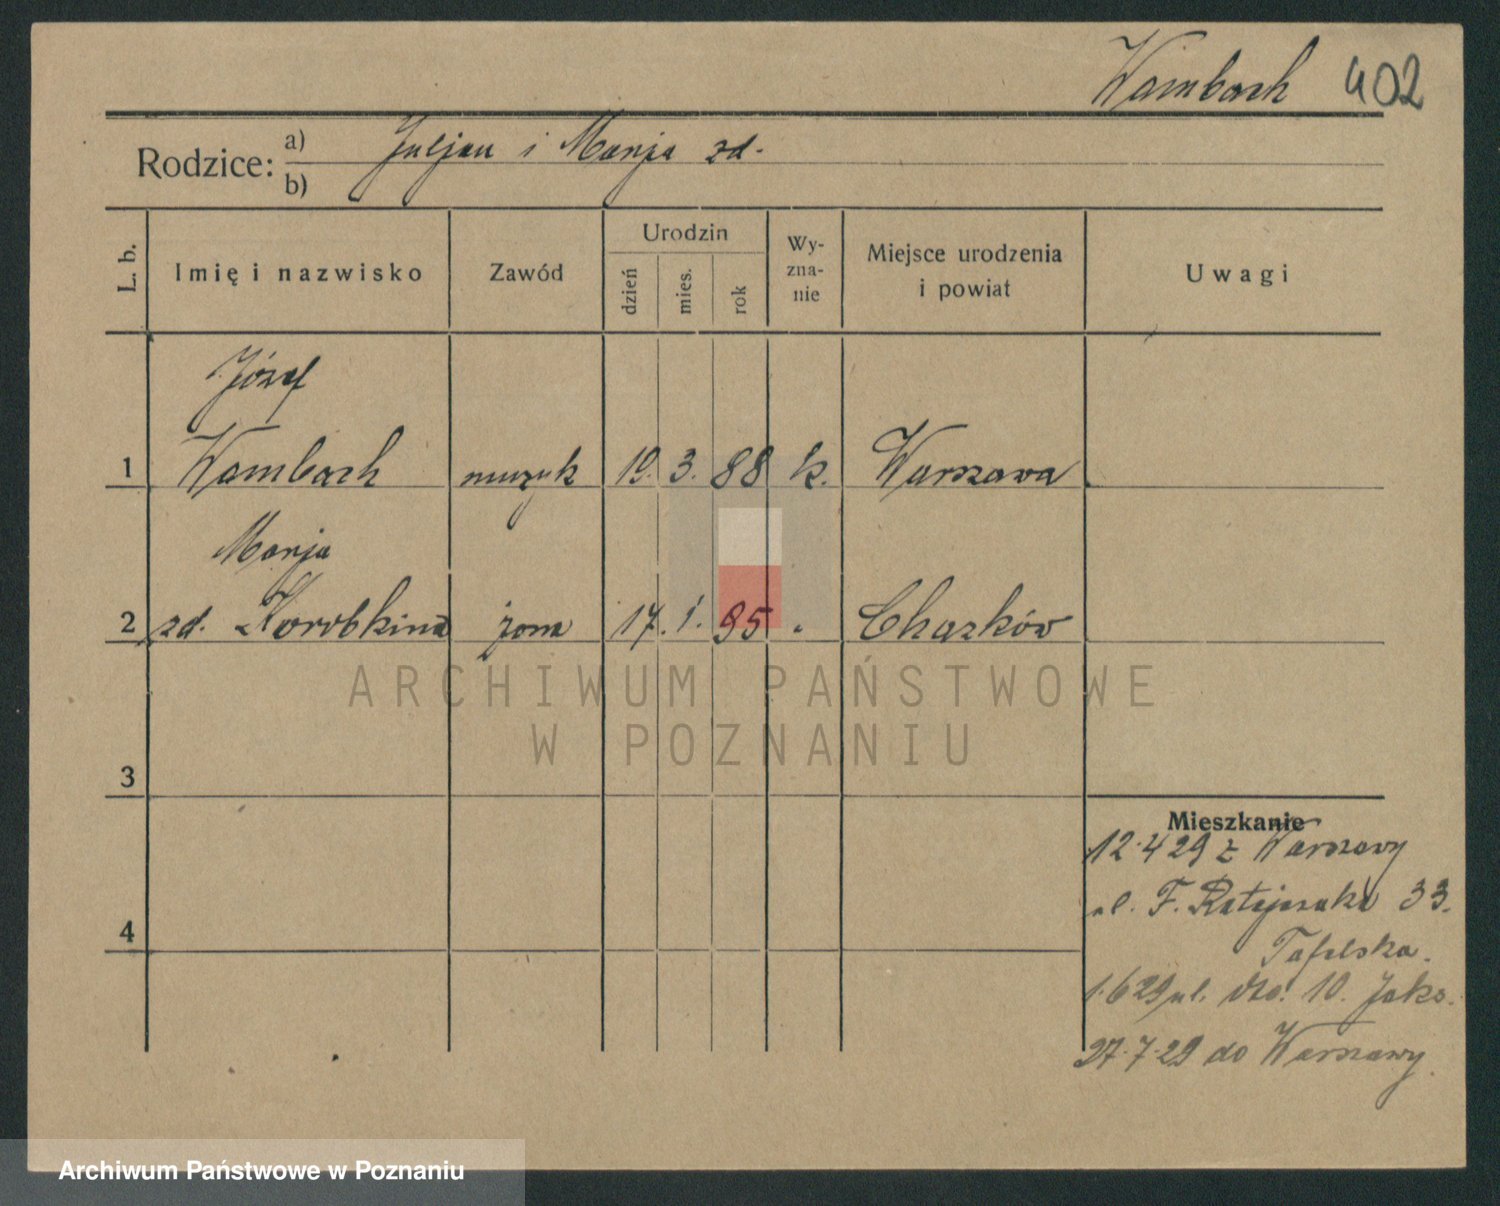 Wambach 402
Rodzice: a) Juljan i Marja zd.
b)
L. b.
Imię i nazwisko
Zawód
Urodzin
dzień
mies.
rok
Wy-
zna-
nie
Miejsce urodzenia
i powiat
Uwagi
Józef
1 Wambach muzyk 19. 3. 88 k. Warszawa
Marja
2 zd. Korobkina żona 17. 1. 95 " Charków
3
4
Mieszkanie
12.4 29 z Warszawy
ul. F. Ratajczaka 33.
Tafelska.
1.6 29 ul. dto. 10. Jako.
27.7.29 do Warszawy.
ARCHIWUM PAŃSTWOWE
W POZNANIU
Archiwum Państwowe w Poznaniu